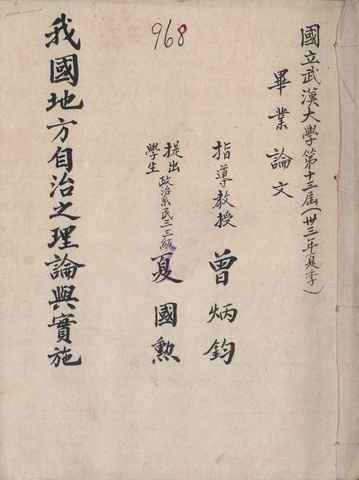 國立武漢大學第十三屆(卅三年夏季)
畢業論文
指導教授 曾炳鈞
提出學生 政治系民三三級 夏國勲
968
我國地方自治之理論與實施